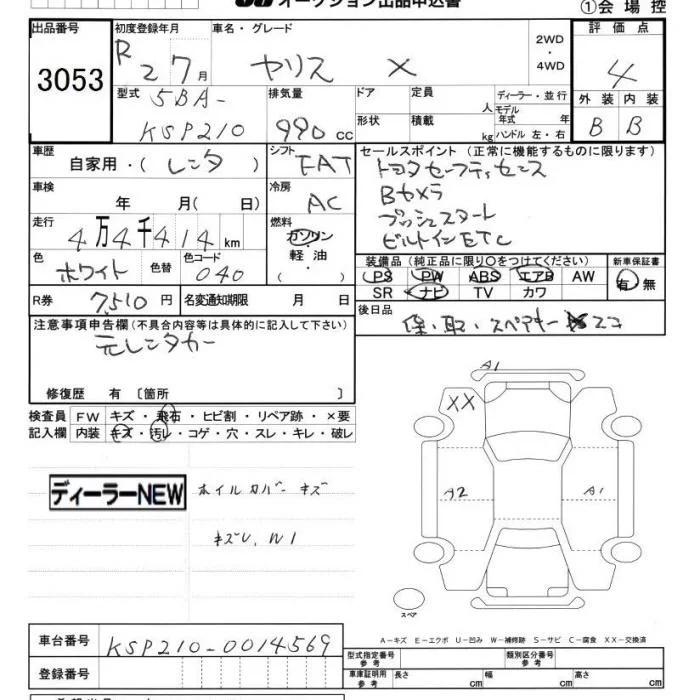 オークション出品申込書
①会場控
出品番号 初度登録年月 車名・グレード 評価点
3053 R 2 7月 ヤリス X 2WD ・ 4WD 4
型式 排気量 ドア 定員 人 ディーラー・並行 外装 内装
5BA- KSP210 990 cc 形状 積載 kg モデル年式 年 ハンドル 左・右 B B
車歴 自家用・(レンタ) シフト FAT セールスポイント (正常に機能するものに限ります)
トヨタセーフティセンス
車検 年 月( 日) 冷房 AC Bカメラ
走行 4万4千414km 燃料 ガソリン 軽油 ・ プッシュスタート
ビルトインETC
色 ホワイト 色替 色コード 040
装備品 (純正品に限り○をつけてください) 新車保証書
PS PW ABS エアB AW 有・無
SR ナビ TV カワ
R券 7,510円 名変通知期限 月 日
後日品 保・取・スペアキーxココ
注意事項申告欄(不具合内容等は具体的に記入して下さい)
元レンタカー
修復歴 有 〔箇所 〕
検査員 FW キズ・飛石・ヒビ割・リペア跡・×要
記入欄 内装 キズ・汚レ・コゲ・穴・スレ・キレ・破レ
A1
XX
ディーラーNEW ホイルカバーキズ
A2 A1
キズレ、W1
スペア
A-キズ E-エクボ U-凹み W-補修跡 S-サビ C-腐食 XX-交換済
車台番号 KSP210-0014569
型式指定番号 参考 類別区分番号 参考
登録番号 車庫証明用 参考 長さ cm 幅 cm 高さ cm